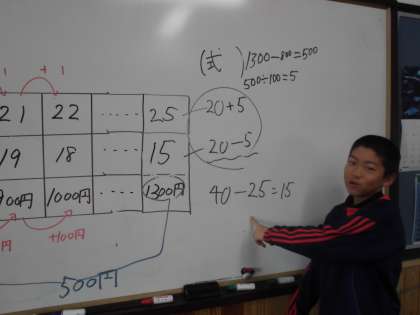 1 +1
(式) 1300-800=500
500÷100=5
21 22 …… 25 20+5
19 18 …… 15 20-5
900円 1000円 …… 1300円
40-25=15
円 +100円
500円